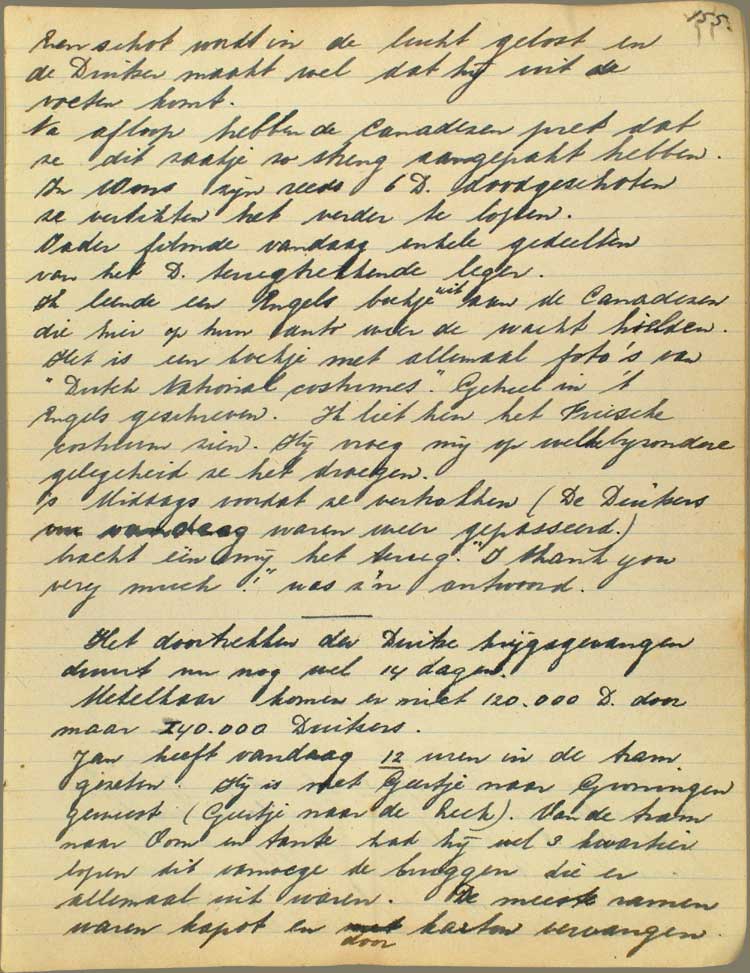 155.
Een schot wordt in de lucht gelost en
de Duitser maakt wel dat hij uit de
voeten komt.
Na afloop hebben de Canadezen pret dat
ze dit zaakje zo streng aangepakt hebben.
In Wons zijn reeds 6 D. doodgeschoten
ze vertikten het verder te lopen.
Vader filmde vandaag enkele gedeelten
van het D. terugtrekkende leger.
Ik leende een Engels boekje "uit" aan de Canadezen
die hier op hun auto weer de wacht hielden.
Het is een boekje met allemaal foto's van
"Dutch National costumes". Geheel in 't
Engels geschreven. Ik liet hen het Friesche
costuum zien. Hij vroeg mij op welke byzondere
gelegeheid ze het droegen.
's Middags voordat ze vertrokken (De Duitsers
vandaag waren weer gepasseerd.)
bracht één mij het terug. "I thank you
very much!" was z'n antwoord.
Het doortrekken der Duitse krijgsgevangen
duurt nu nog wel 14 dagen.
Metelkaar komen er niet 120.000 D. door
maar 140.000 Duitsers.
Jan heeft vandaag 12 uren in de tram
gezeten. Hij is met Geertje naar Groningen
geweest (Geertje naar de ). Van de tram
naar Oom en tante had hij wel 3 kwartier
lopen dit vanwege de bruggen die er
allemaal uit waren. De meeste ramen
waren kapot en met karton vervangen.
door